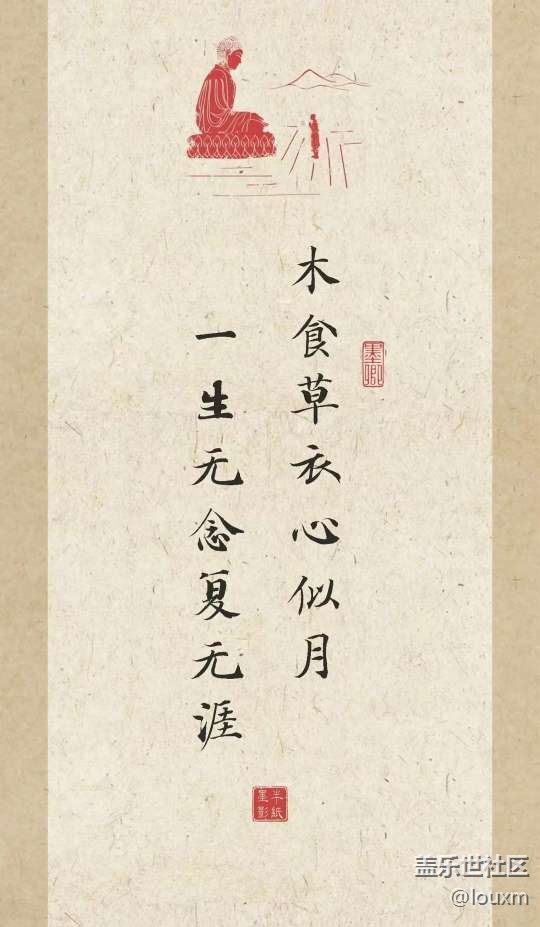 木食草衣心似月
一生无念复无涯
墨卿
半纸
墨影
盖乐世社区
@louxm